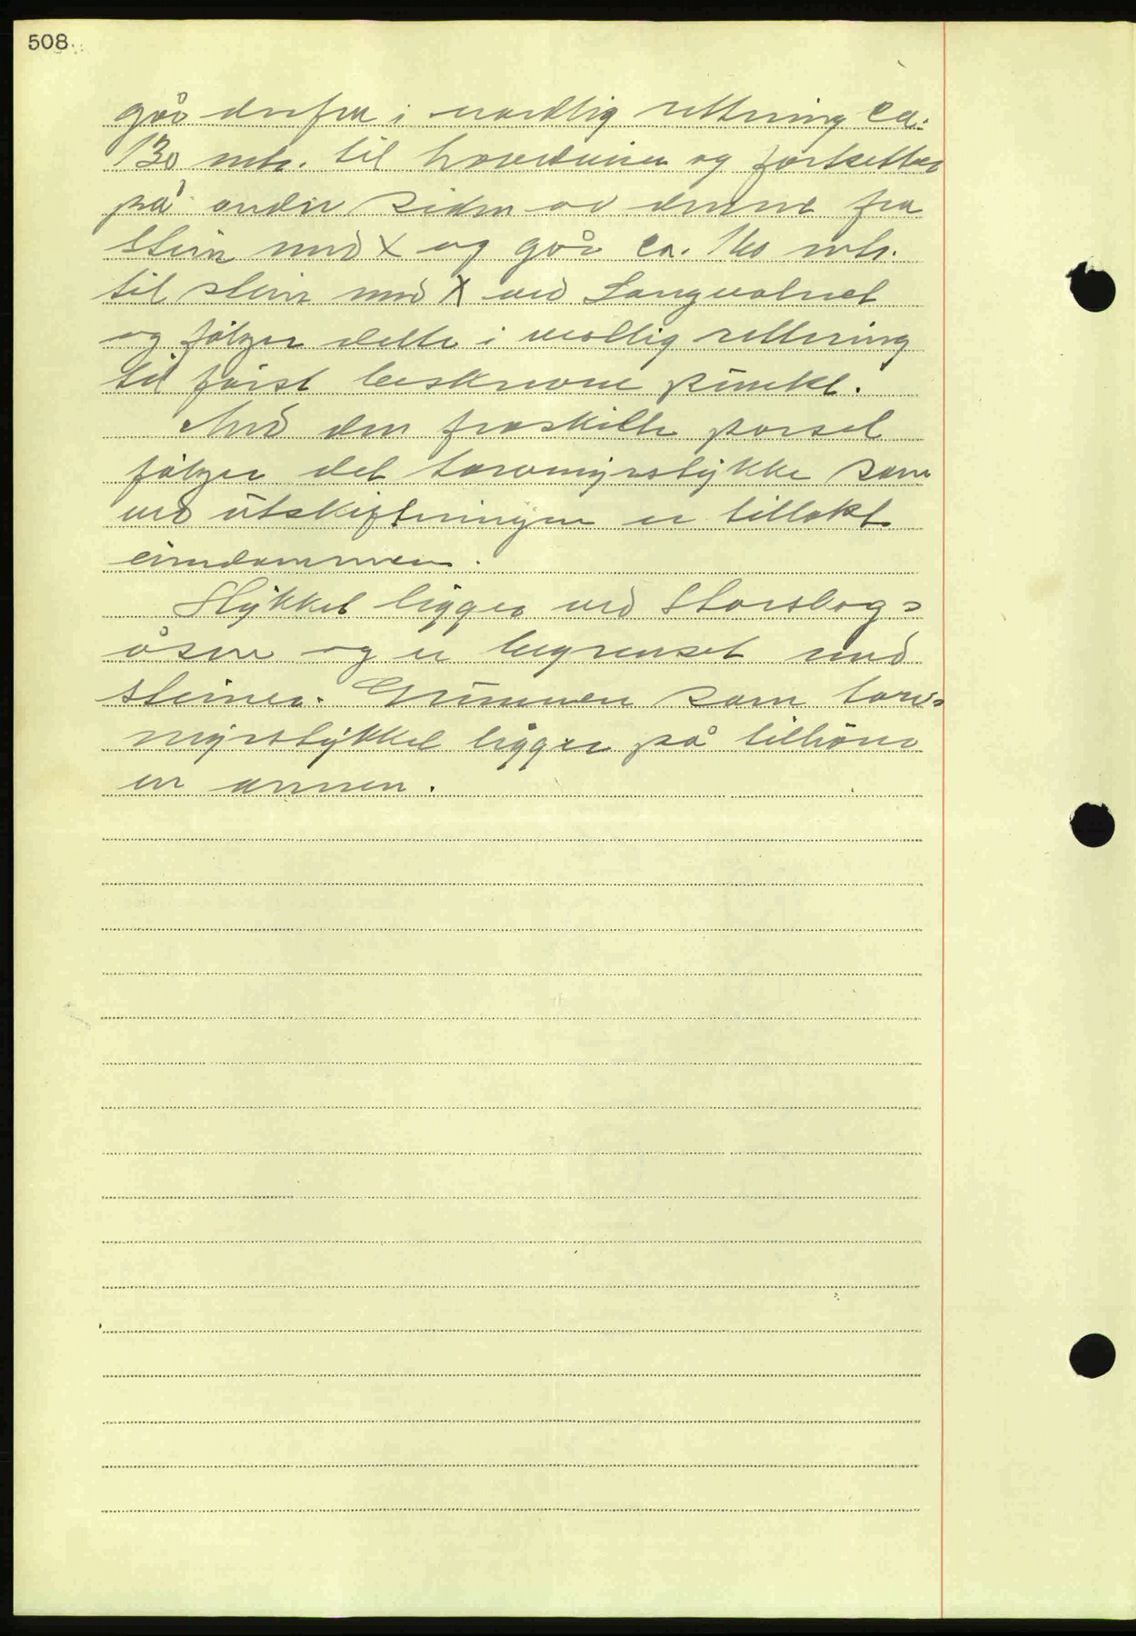 508
går derfra i nordlig retning ca.
130 mtr. til hovedveien og fortsetter
på andre siden av denne fra
stein med X og går ca. 160 mtr.
til stein med X ved Langvatnet
og følger dette i vestlig retning
til først beskrevne punkt.
Med den fraskilte parsel
følger det torvmyrstykke som
ved utskiftningen er tillakt
eiendommen.
Stykket ligger ved Storskog-
åsen og er begrenset med
steiner. Grunnen som torv-
myrstykket ligger på tilhører
en annen.